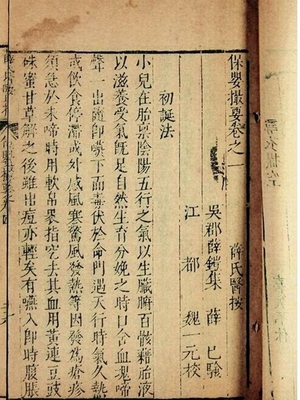 保嬰撮要卷之一
薛氏醫按
吳郡薛鎧集 薛己驗
江都 魏一元校
初誕法
小兒在胎稟陰陽五行之氣以生臟腑百骸藉胎液
以滋養受氣既足自然生育分娩之時口含血塊啼
聲一出隨即嚥下而毒伏於命門遇天行時氣久熱
或飲食停滯或外感風寒驚風發熱等因發為瘡疹
須急於未啼時用軟帛裹指挖去其血用黃連豆豉
硃蜜甘草解之後雖出痘亦輕矣有嚥入即時腹脹